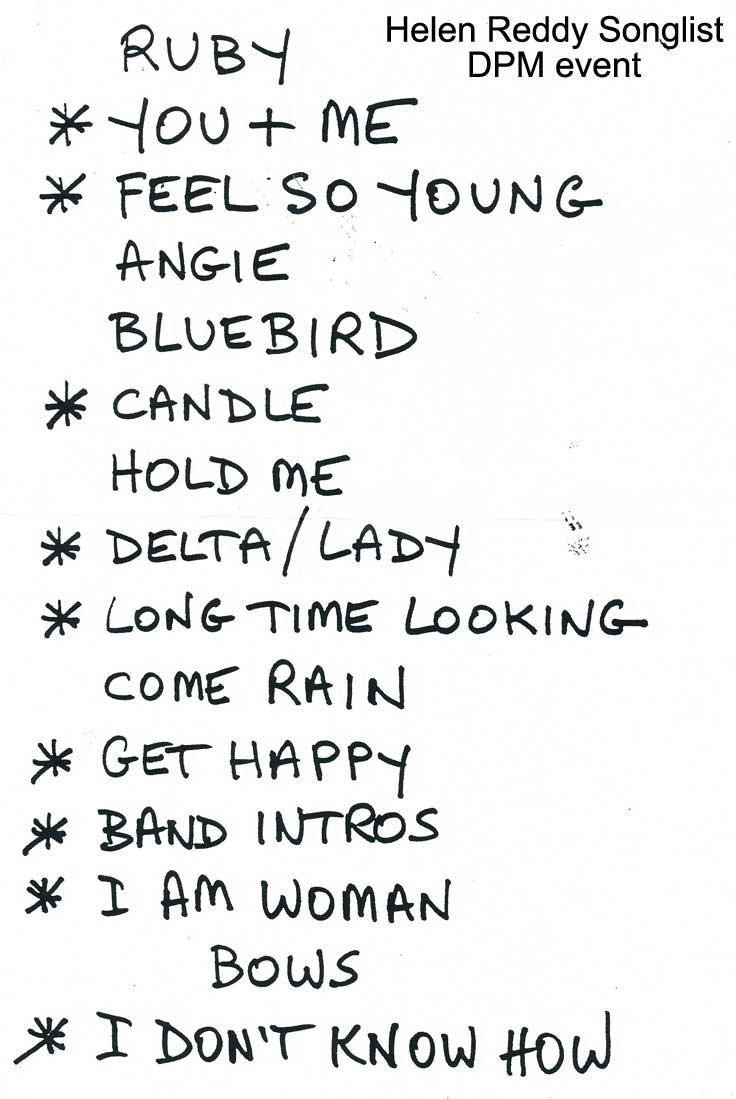 Helen Reddy Songlist
DPM event
RUBY
* YOU + ME
* FEEL SO YOUNG
ANGIE
BLUEBIRD
* CANDLE
HOLD ME
* DELTA/LADY
* LONG TIME LOOKING
COME RAIN
* GET HAPPY
* BAND INTROS
* I AM WOMAN
BOWS
* I DON'T KNOW HOW